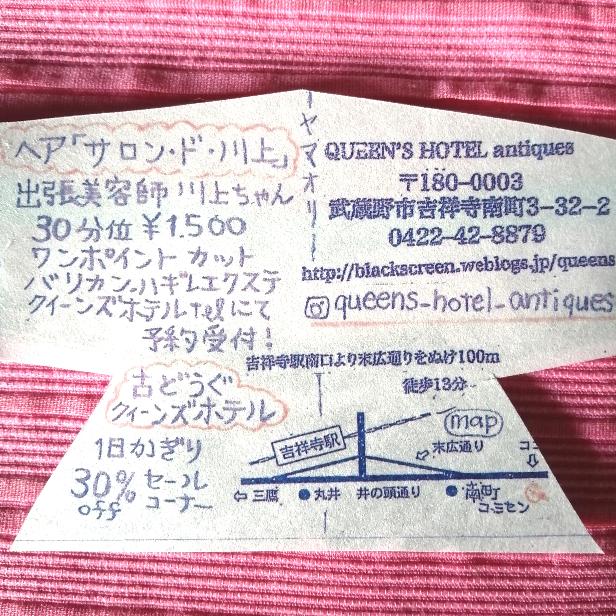 ヘア「サロン・ド・川上」
出張美容師 川上ちゃん
30分位 ¥1.500
ワンポイント カット
バリカン.ハギレエクステ
クイーンズホテル telにて
予約受付!
ーヤマオリー
QUEEN'S HOTEL antiques
〒180-0003
武蔵野市吉祥寺南町3-32-2
0422-42-8879
http://blackscreen.weblogs.jp/queens
queens_hotel_antiques
古どうぐ
クイーンズホテル
1日かぎり
30% off セールコーナー
吉祥寺駅南口より末広通りをぬけ100m
徒歩13分
map
吉祥寺駅
←末広通り
コー
⇦三鷹 ●丸井 井の頭通り ●南町コミセン